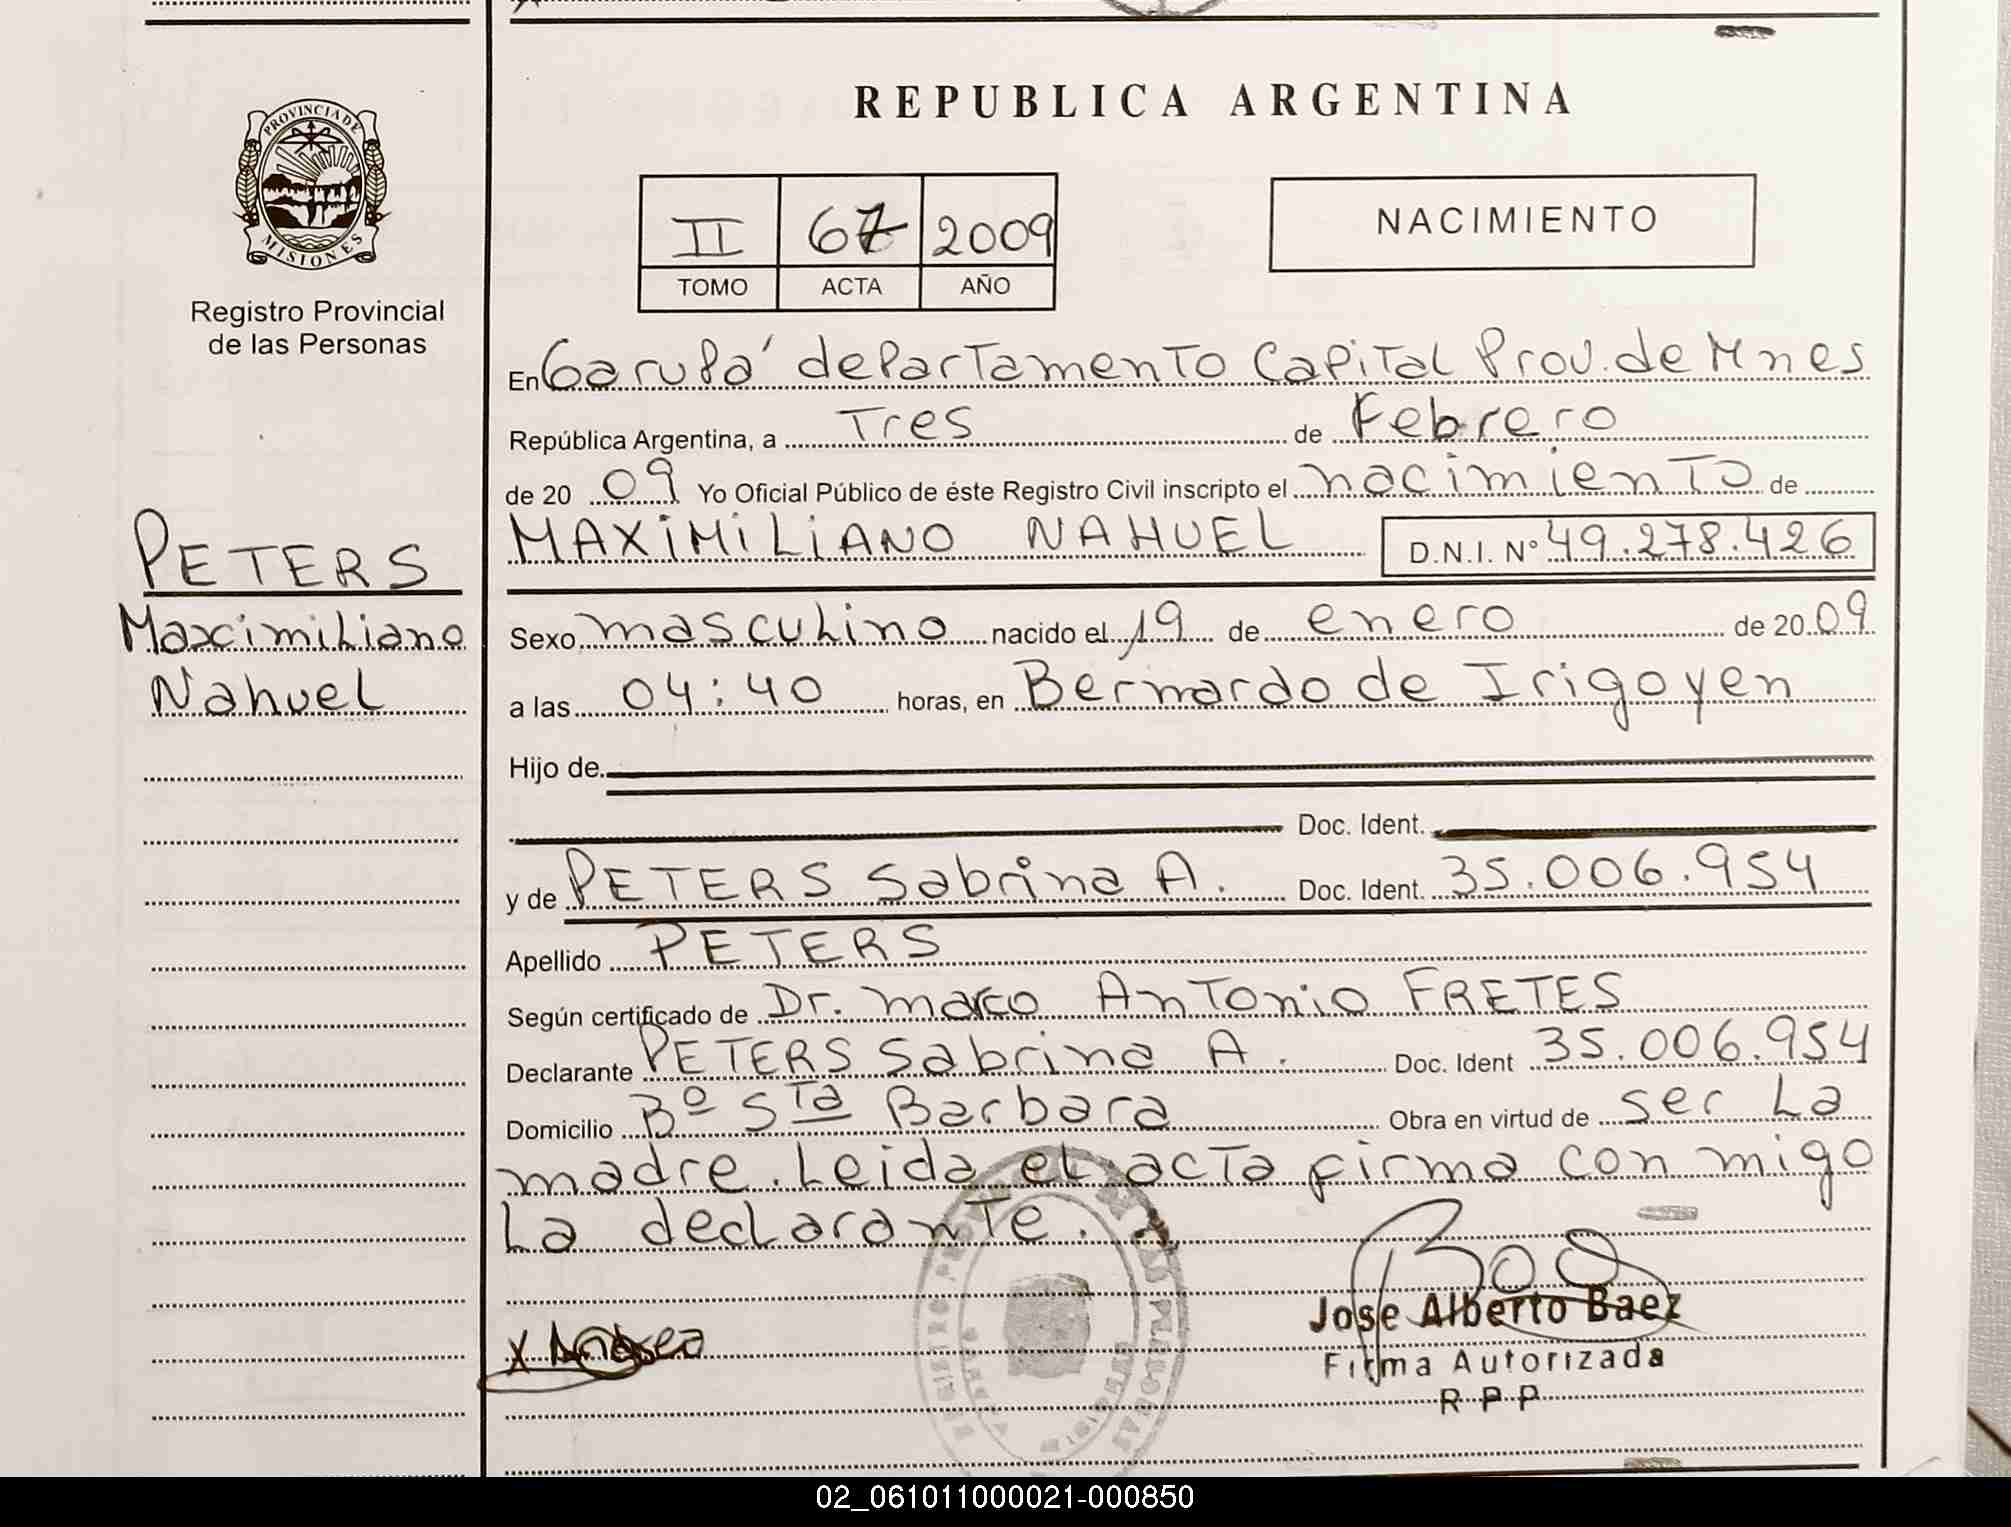 PROVINCIA DE
MISIONES
Registro Provincial
de las Personas
PETERS
Maximiliano
Nahuel
REPUBLICA ARGENTINA
II 67 2009
TOMO ACTA AÑO
NACIMIENTO
En Garupá departamento Capital Prov. de Mnes
República Argentina, a Tres de Febrero
de 20 09 Yo Oficial Público de éste Registro Civil inscripto el nacimiento de
MAXIMILIANO NAHUEL D.N.I. Nº 49.278.426
Sexo masculino nacido el 19 de enero de 20 09
a las 04:40 horas, en Bernardo de Irigoyen
Hijo de
Doc. Ident.
y de PETERS Sabrina A. Doc. Ident. 35.006.954
Apellido PETERS
Según certificado de Dr. Marco Antonio FRETES
Declarante PETERS Sabrina A. Doc. Ident 35.006.954
Domicilio Bº Sta Barbara Obra en virtud de ser La
madre. Leida el acta firma con migo
La declarante.
Jose Alberto Baez
Firma Autorizada
R P P
02_061011000021-000850